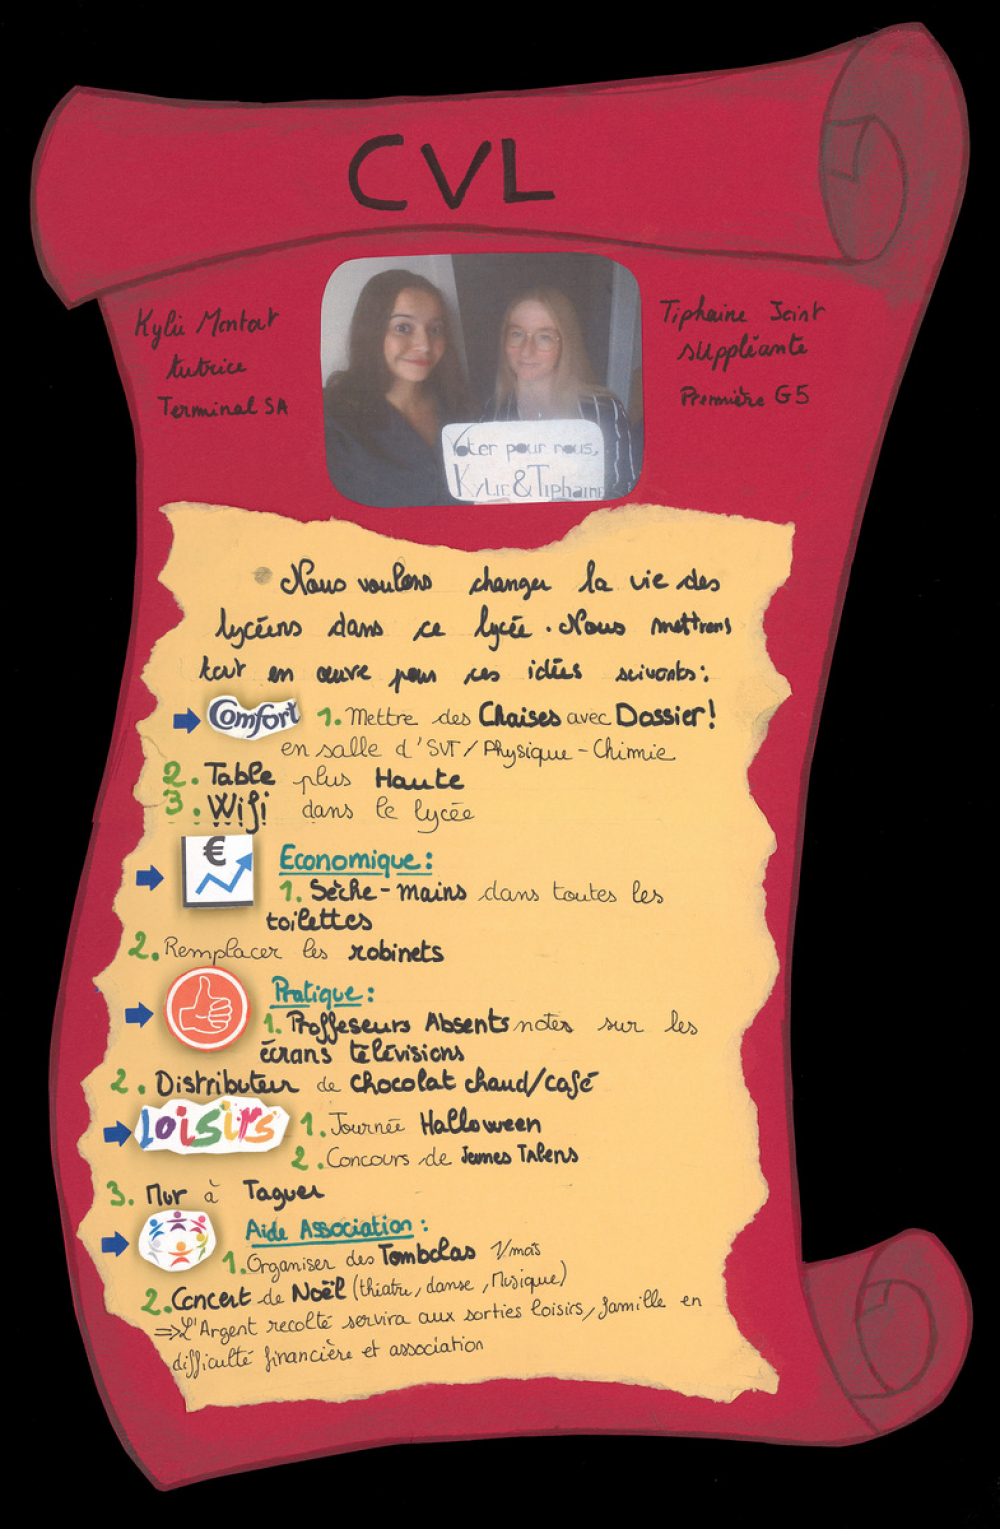 CVL
Kylie Montout
tutrice
Terminal SA
Tiphaine Joint
suppléante
Première G5
Voter pour nous,
Kylie & Tiphaine
Nous voulons changer la vie des
lycéens dans ce lycée. Nous mettrons
tout en œuvre pour ces idées suivants:
Comfort 1. Mettre des Chaises avec Dossier!
en salle d'SVT/Physique-Chimie
2. Table plus Haute
3. Wifi dans le lycée
€
Economique:
1. Sèche-mains dans toutes les
toilettes
2. Remplacer les robinets
Pratique:
1. Proffeseurs Absents notés sur les
écrans télévisions
2. Distributeur de chocolat chaud/café
Loisirs 1. Journée Halloween
2. Concours de Jeunes Talens
3. Mur à Taguer
Aide Association:
1. Organiser des Tombolas 1/mois
2. Concert de Noël (théatre, danse, Musique)
⇒ L'Argent recolté servira aux sorties loisirs, famille en
difficulté financière et association